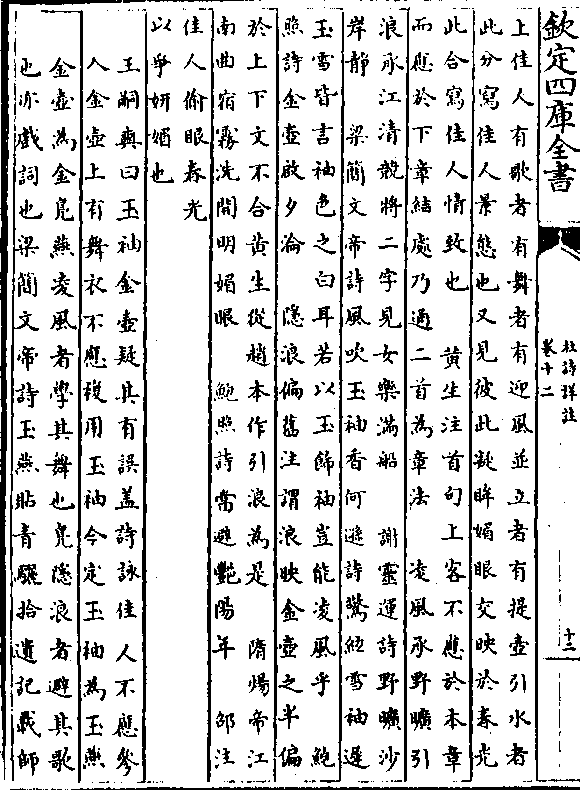 欽定四庫全書
杜詩詳註
卷十二
十二
上佳人有歌者有舞者有迎風並立者有提壺引水者
此分寫佳人景態也又見彼此凝眸媚眼交映於春光
此合寫佳人情致也 黃生注首句上客不應於本章
而應於下章結處乃通二首為章法 凌風承野曠引
浪承江清競將二字見女樂滿船 謝靈運詩野曠沙
岸靜 梁簡文帝詩風吹玉袖香何遜詩驚紅雪袖遲
玉雪皆言袖色之白耳若以玉飾袖豈能凌風乎 鮑
照詩金壺啟夕淪 隱浪偏舊注謂浪映金壺之半偏
於上下文不合黃生從趙本作引浪為是 隋煬帝江
南曲宿霧洗開明媚眼 鮑照詩當避艷陽年 邵注
佳人偷眼春光
以爭妍媚也
王嗣奭曰玉袖金壺疑其有誤蓋詩詠佳人不應參
入金壺上有舞衣不應複用玉袖今定玉袖為玉燕
金壺為金鳧燕凌風者學其舞也鳧隱浪者避其歌
也亦戲詞也梁簡文帝詩玉燕貼青驪拾遺記義師